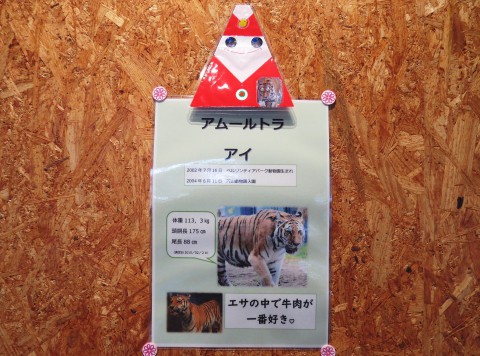 アムールトラ
アイ
2002年7月16日
2004年6月
体重 113.3kg
頭胴長 175㎝
尾長 88㎝
エサの中で牛肉が
一番好き♡